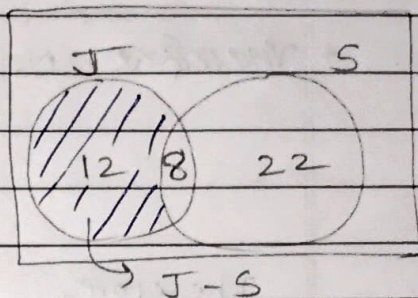 J S
12 8 22
J-S